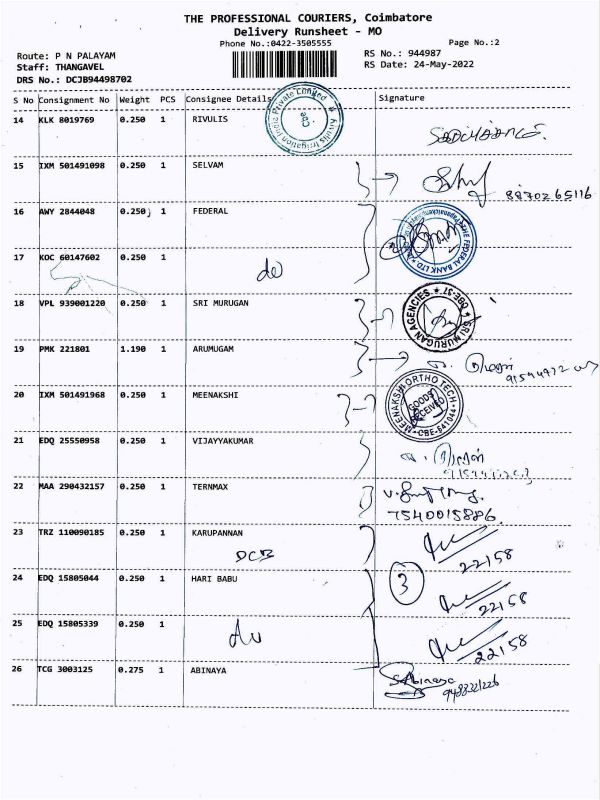 THE PROFESSIONAL COURIERS, Coimbatore
Delivery Runsheet - MO
Phone No.:0422-3505555
Page No.:2
Route: P N PALAYAM
RS No.: 944987
Staff: THANGAVEL
RS Date: 24-May-2022
DRS No.: DCJB94498702
S No Consignment No Weight PCS Consignee Details Signature
14 KLK 8019769 0.250 1 RIVULIS
Rivulis Irrigation India Private Limited
Cbe
15 IXM 501491098 0.250 1 SELVAM
8870265116
16 AWY 2844048 0.250 1 FEDERAL
THE FEDERAL BANK LTD
17 KOC 60147602 0.250 1
do
18 VPL 939001220 0.250 1 SRI MURUGAN
SRI MURUGAN AGENCIES ★ CBE-37 ★
19 PMK 221801 1.190 1 ARUMUGAM
20 IXM 501491968 0.250 1 MEENAKSHI
MEENAKSHI ORTHO TECH
GOODS RECEIVED
CBE-641044
21 EDQ 25550958 0.250 1 VIJAYYAKUMAR
22 MAA 290432157 0.250 1 TERNMAX
7540015886
23 TRZ 110090185 0.250 1 KARUPANNAN
DCB
22158
24 EDQ 15805044 0.250 1 HARI BABU
3
22158
25 EDQ 15805339 0.250 1
do
22158
26 TCG 3003125 0.275 1 ABINAYA
S.Abinaya
9488221226